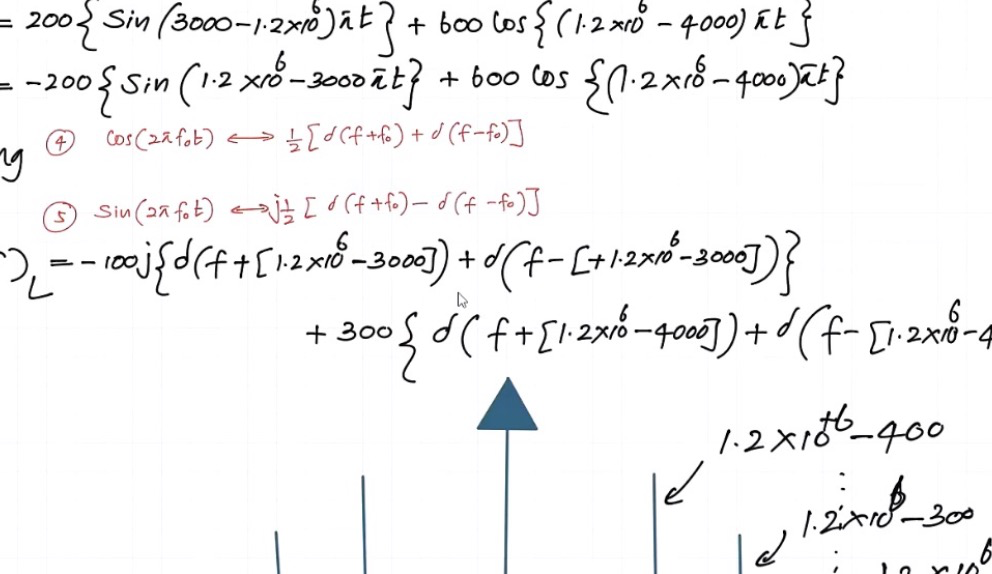 = 200{ Sin (3000-1.2×10⁶)π̄t} + 600 Cos{(1.2×10⁶ - 4000) π̄t}
= -200{ Sin (1.2×10⁶-3000π̄t} + 600 Cos {(1.2×10⁶-4000)π̄t}
ng
④ Cos(2π̄f₀t) ⟷ ½[d(f+f₀) + d(f-f₀)]
⑤ Sin(2π̄f₀t) ⟷ j½ [ d(f+f₀) - d(f-f₀)]
)L = -100j{d(f+[1.2×10⁶-3000]) + d(f-[+1.2×10⁶-3000])}
+ 300{ d( f+[1.2×10⁶-4000]) + d(f-[1.2×10⁶-4
1.2×10⁺⁶-400
⋮
1.2×10⁶-300
⋮